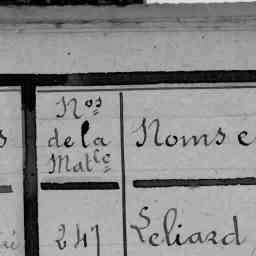 Nos
de la
Matle
Noms e
247
Leliard